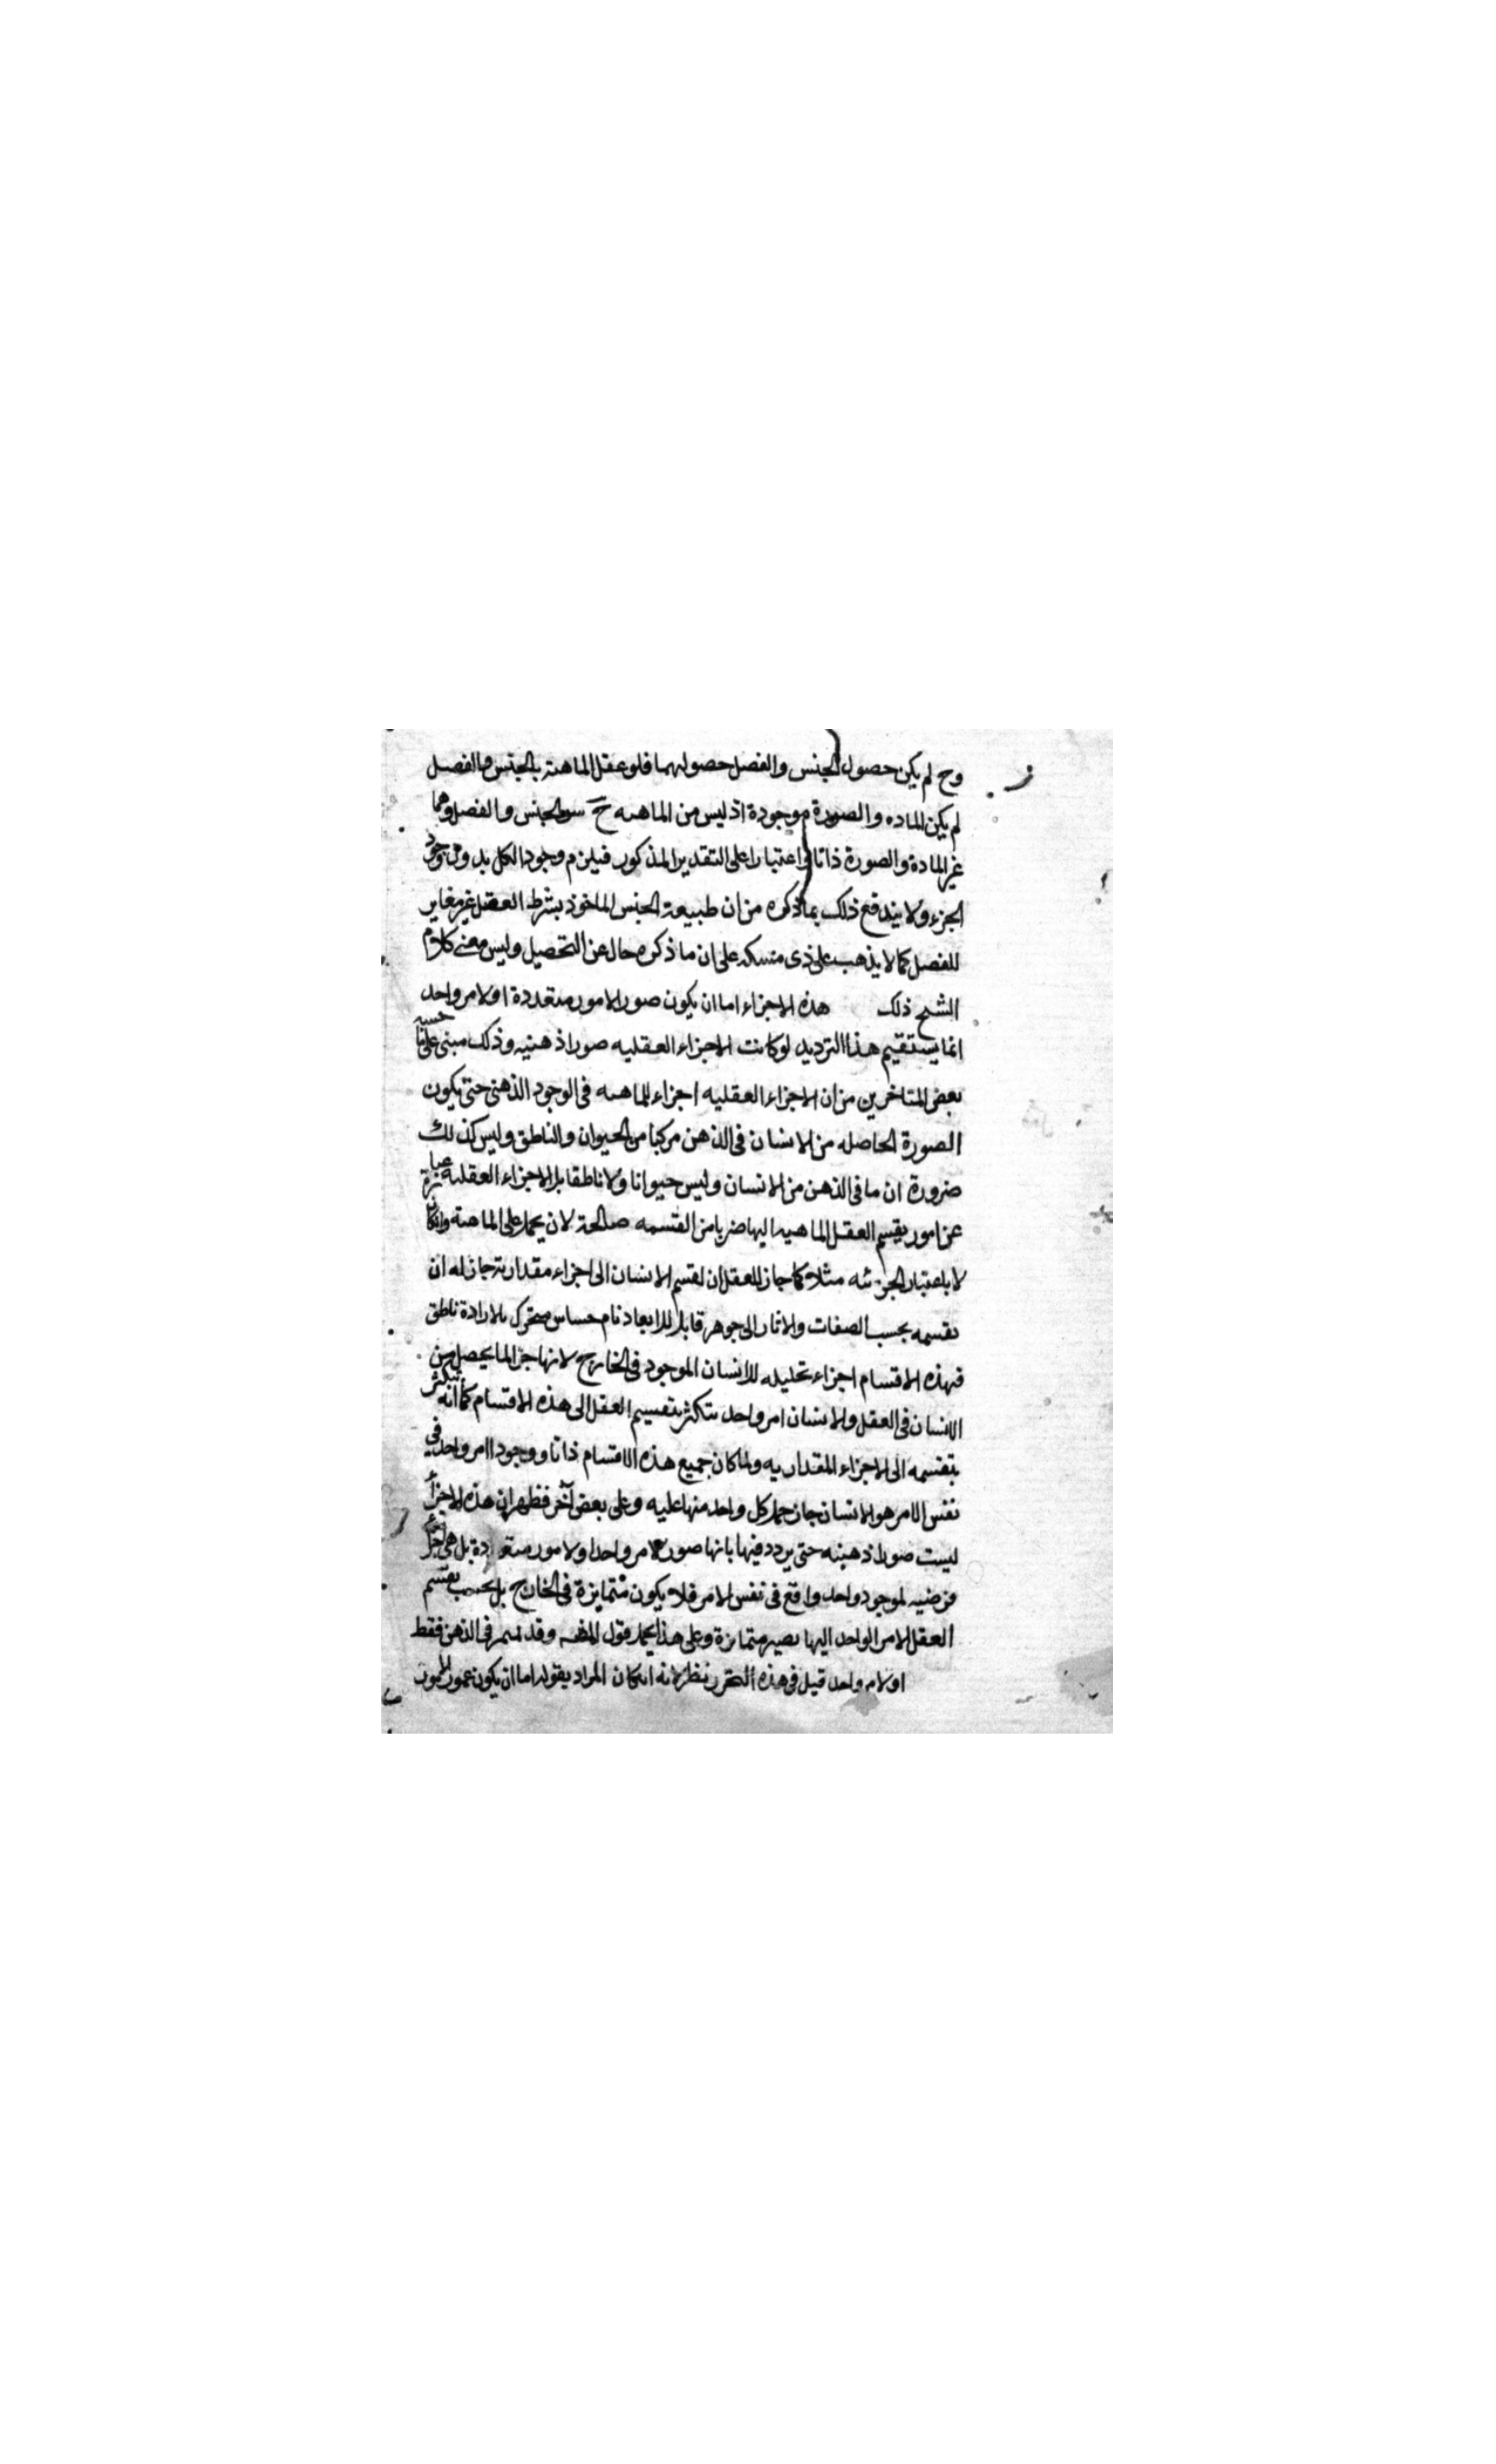 وح لم يكن حصول الجنس والفصل حصولهما فلو عقل الماهية بالجنس والفصل
لم يكن الماده والصورة موجودة اذ ليس من الماهيه ح سوى الجنس والفصل وهما
غير المادة والصورة ذاتا او اعتبارا على التقدير المذكور فيلزم وجود الكل بدون وجود
الجزء ولا يندفع ذلك بما ذكره من ان طبيعة الجنس الماخوذ بشرط الفصل غير مغاير
للفصل كما لا يذهب على ذى مسكه على ان ما ذكره خال عن التحصيل وليس معنى كلام
الشيخ ذلك هذه الاجزاء اما ان يكون صورا لامور متعددة او لامر واحد
انما يستقيم هذا الترديد لو كانت الاجزاء العقليه صورا ذهنيه وذلك مبنى على
بعض المتاخرين من ان الاجزاء العقليه اجزاء للماهيه فى الوجود الذهنى حتى يكون
الصورة الحاصله من الانسان فى الذهن مركبا من الحيوان والناطق وليس كذلك
ضرورة ان ما فى الذهن من الانسان وليس حيوانا ولا ناطقا بل الاجزاء العقليه عبارة
عن امور يقسم العقل الماهيه اليها ضربا من القسمه صالحة لان يحمل على الماهية وانكان
لا باعتبار الجزئيه مثلا كما جاز للعقل ان يقسم الانسان الى اجزاء مقدارية جاز له ان
يقسمه بحسب الصفات والاثار الى جوهر قابل للابعاد نام حساس متحرك بالارادة ناطق
فهذه الاقسام اجزاء تحليليه للانسان الموجود فى الخارج لانها اجزا لما يحصل من
الانسان فى العقل والانسان امر واحد يتكثر بتقسيم العقل الى هذه الاقسام كما انه يتكثر
بتقسيمه الى الاجزاء المقداريه ولما كان جميع هذه الاقسام ذاتا ووجودا امر واحد فى
نفس الامر هو الانسان جاز حمل كل واحد منها عليه وعلى بعض آخر فظهر ان هذه الاجزأ
ليست صورا ذهنيه حتى يردد فيها بانها صور لامر واحد او لامور متعددة بل هى اجزاء
فرضيه لموجود واحد واقع فى نفس الامر فلا يكون متمايزة فى الخارج بل بحسب تقسيم
العقل الامر الواحد اليها يصير متمايزة وعلى هذا يحمل قول المص وقد يتميز فى الذهن فقط
او لامر واحد قيل فى هذه التقرير نظر لانه انكان المراد بقوله اما ان يكون صور لامور